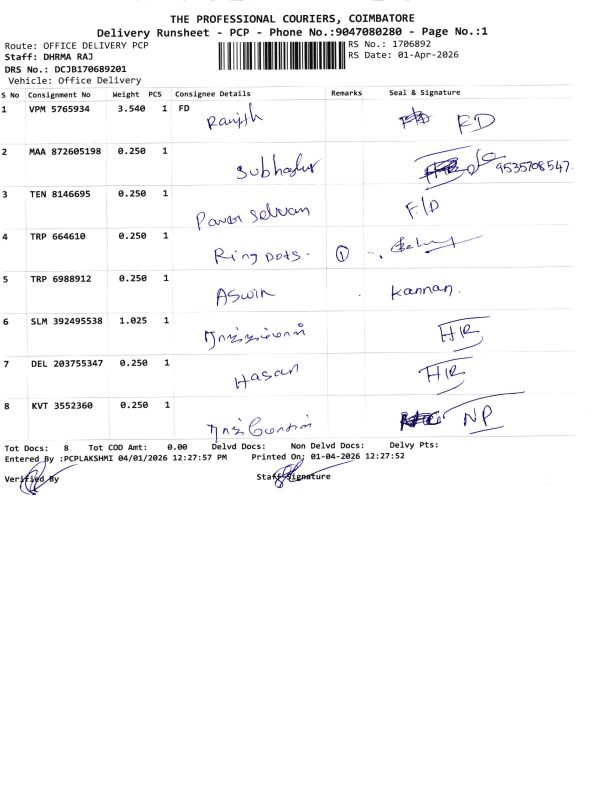 THE PROFESSIONAL COURIERS, COIMBATORE
Delivery Runsheet - PCP - Phone No.:9047080280 - Page No.:1
Route: OFFICE DELIVERY PCP
RS No.: 1706892
Staff: DHRMA RAJ
RS Date: 01-Apr-2026
DRS No.: DCJB170689201
Vehicle: Office Delivery
S No Consignment No Weight PCS Consignee Details Remarks Seal & Signature
1 VPM 5765934 3.540 1 FD Ranjith FD
2 MAA 872605198 0.250 1 9535708547
3 TEN 8146695 0.250 1 F/D
4 TRP 664610 0.250 1 Ring Dots. 1
5 TRP 6988912 0.250 1 Aswin Kannan.
6 SLM 392495538 1.025 1 HR
7 DEL 203755347 0.250 1 Hasan HR
8 KVT 3552360 0.250 1 NP
Tot Docs: 8 Tot COD Amt: 0.00 Delvd Docs: Non Delvd Docs: Delvy Pts:
Entered By :PCPLAKSHMI 04/01/2026 12:27:57 PM Printed On: 01-04-2026 12:27:52
Verified By Staff Signature